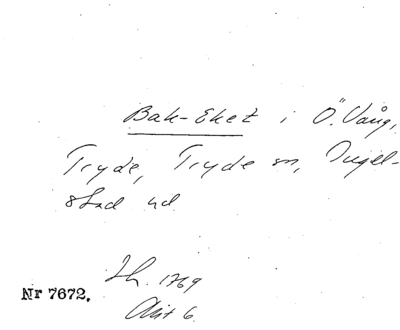 Bak-Eket i Ö. Vång,
Tryde, Tryde sn, Ingel-
stad hd
Sh. 1769
Nr 7672.
Akt 6